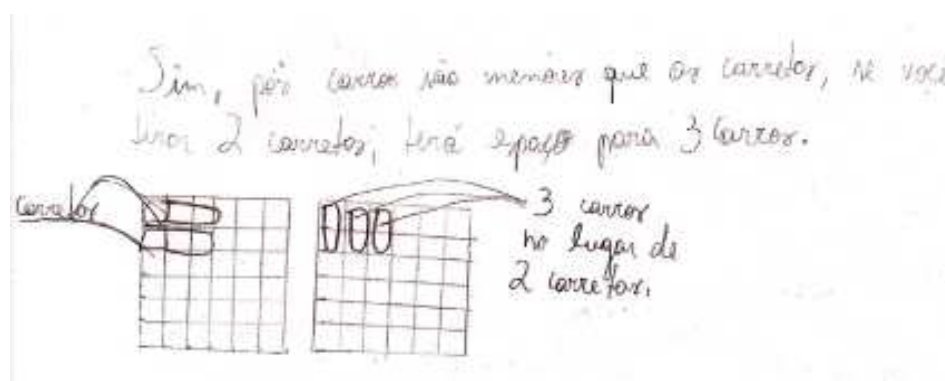 Sim, pois carros são menores que as carretas, se você
tirar 2 carretas, terá espaço para 3 carros.
carretas
3 carros
no lugar de
2 carretas.